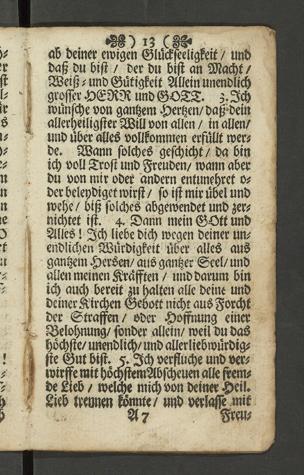 ) 13 (
ab deiner ewigen Glückseeligkeit / und
daß du bist / der du bist an Macht /
Weiß- und Gütigkeit Allein unendlich
grosser HERR und GOTT. 3. Ich
wünsche von gantzem Hertzen / daß dein
allerheiligster Will von allen / in allen /
und über alles vollkommen erfüllt wer-
de. Wann solches geschicht / da bin
ich voll Trost und Freuden / wann aber
du von mir oder andern entunehret o-
der beleydiget wirst / so ist mir übel und
wehe / biß solches abgewendet und zer-
nichtet ist. 4. Dann mein GOtt und
Alles! Ich liebe dich wegen deiner un-
endlichen Würdigkeit über alles aus
gantzem Hertzen / aus gantzer Seel / und
allen meinen Kräfften / und darum bin
ich auch bereit zu halten alle deine und
deiner Kirchen Gebott nicht aus Forcht
der Straffen / oder Hoffnung einer
Belohnung / sonder allein / weil du das
höchste / unendlich / und allerliebwürdig-
ste Gut bist. 5. Ich verfluche und ver-
wirffe mit höchstem Abscheuen alle frem-
de Lieb / welche mich von deiner Heil.
Lieb trennen könnte / und verlasse mit
A 7 Freu-